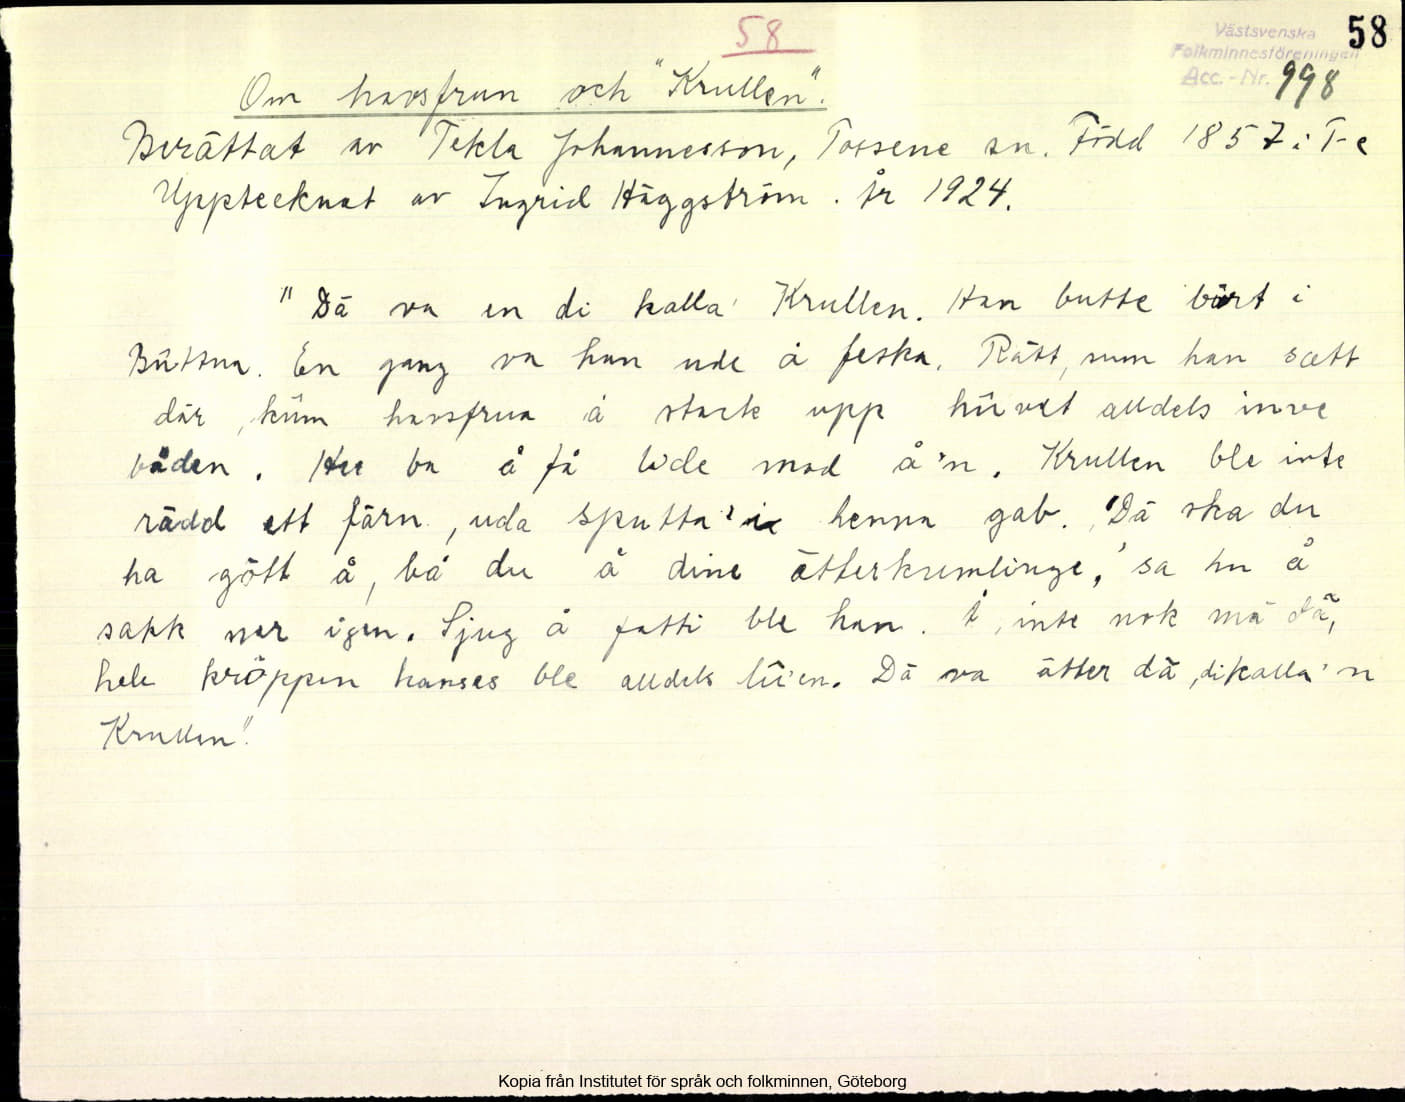 58
58
Västsvenska
Folkminnesföreningen
Acc.-Nr. 998
Om havsfrun och "Krullen".
Berättat av Tekla Johannesson, Tossene sn. Född 1857 i T-e
Upptecknat av Ingrid Häggström. År 1924.
"Dä va en di kalla' Krullen. Han butte bårt i
Büttna. En gang va han ude å feska. Rätt, sum han sætt
där, küm havsfrua å stack upp hüvet alldels inve
båden. Hu ba å få lide mad å'n. Krullen ble inte
rädd ett färn, uda sputta' i henna gab. 'Dä ska du
ha gött å, bå du å dine ätterkumlinge,' sa hu å
sakk ner igen. Sjug å fatti ble han. Å, inte nok mä dä,
hele kröppen hanses ble alldels lü'en. Dä va ätter dä, di kalla 'n
Krullen".
Kopia från Institutet för språk och folkminnen, Göteborg